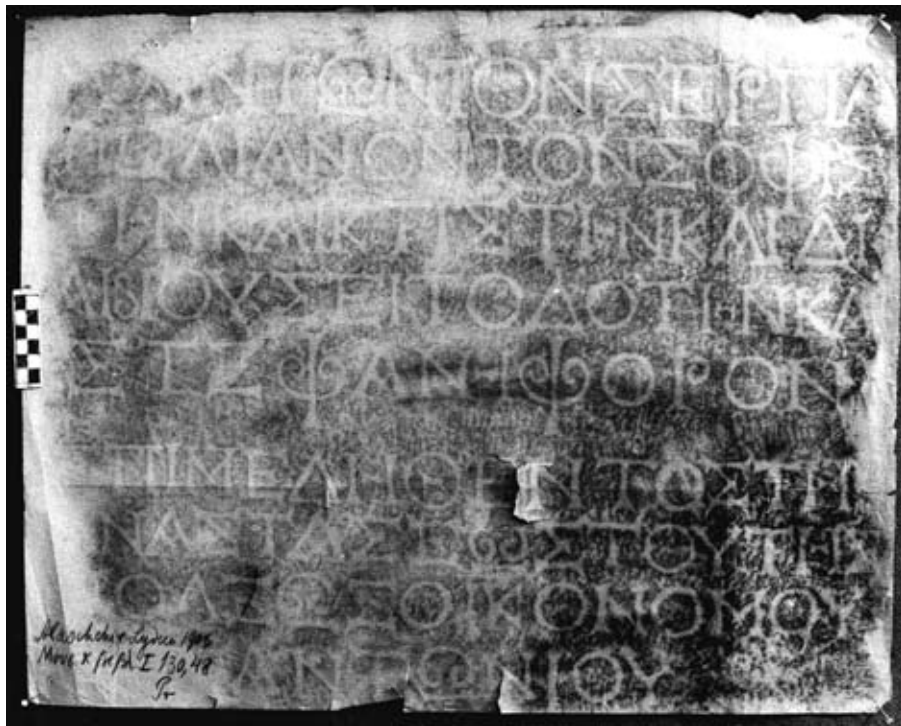 ΑΝΤΩΝΙΟΝΣΕΡΓΙΑ
ΠΩΛΙΑΝΟΝΤΟΝΣΟΦΙΣ
ΤΗΝΚΑΙΚΤΙΣΤΗΝΚΑΙΔΙ
ΑΒΙΟΥΣΕΙΤΟΔΟΤΗΝΚΑ
ΣΤΕΦΑΝΗΦΟΡΟΝ
ΠΙΜΕΛΗΘΕΝΤΟΣΤΗΣ
ΝΑΣΤΑΣΕΩΣΤΟΥΤΗΣ
ΟΛΕΩΣΟΙΚΟΝΟΜΟΥ
ΑΝΤΩΝΙΟΥ
I 130,48